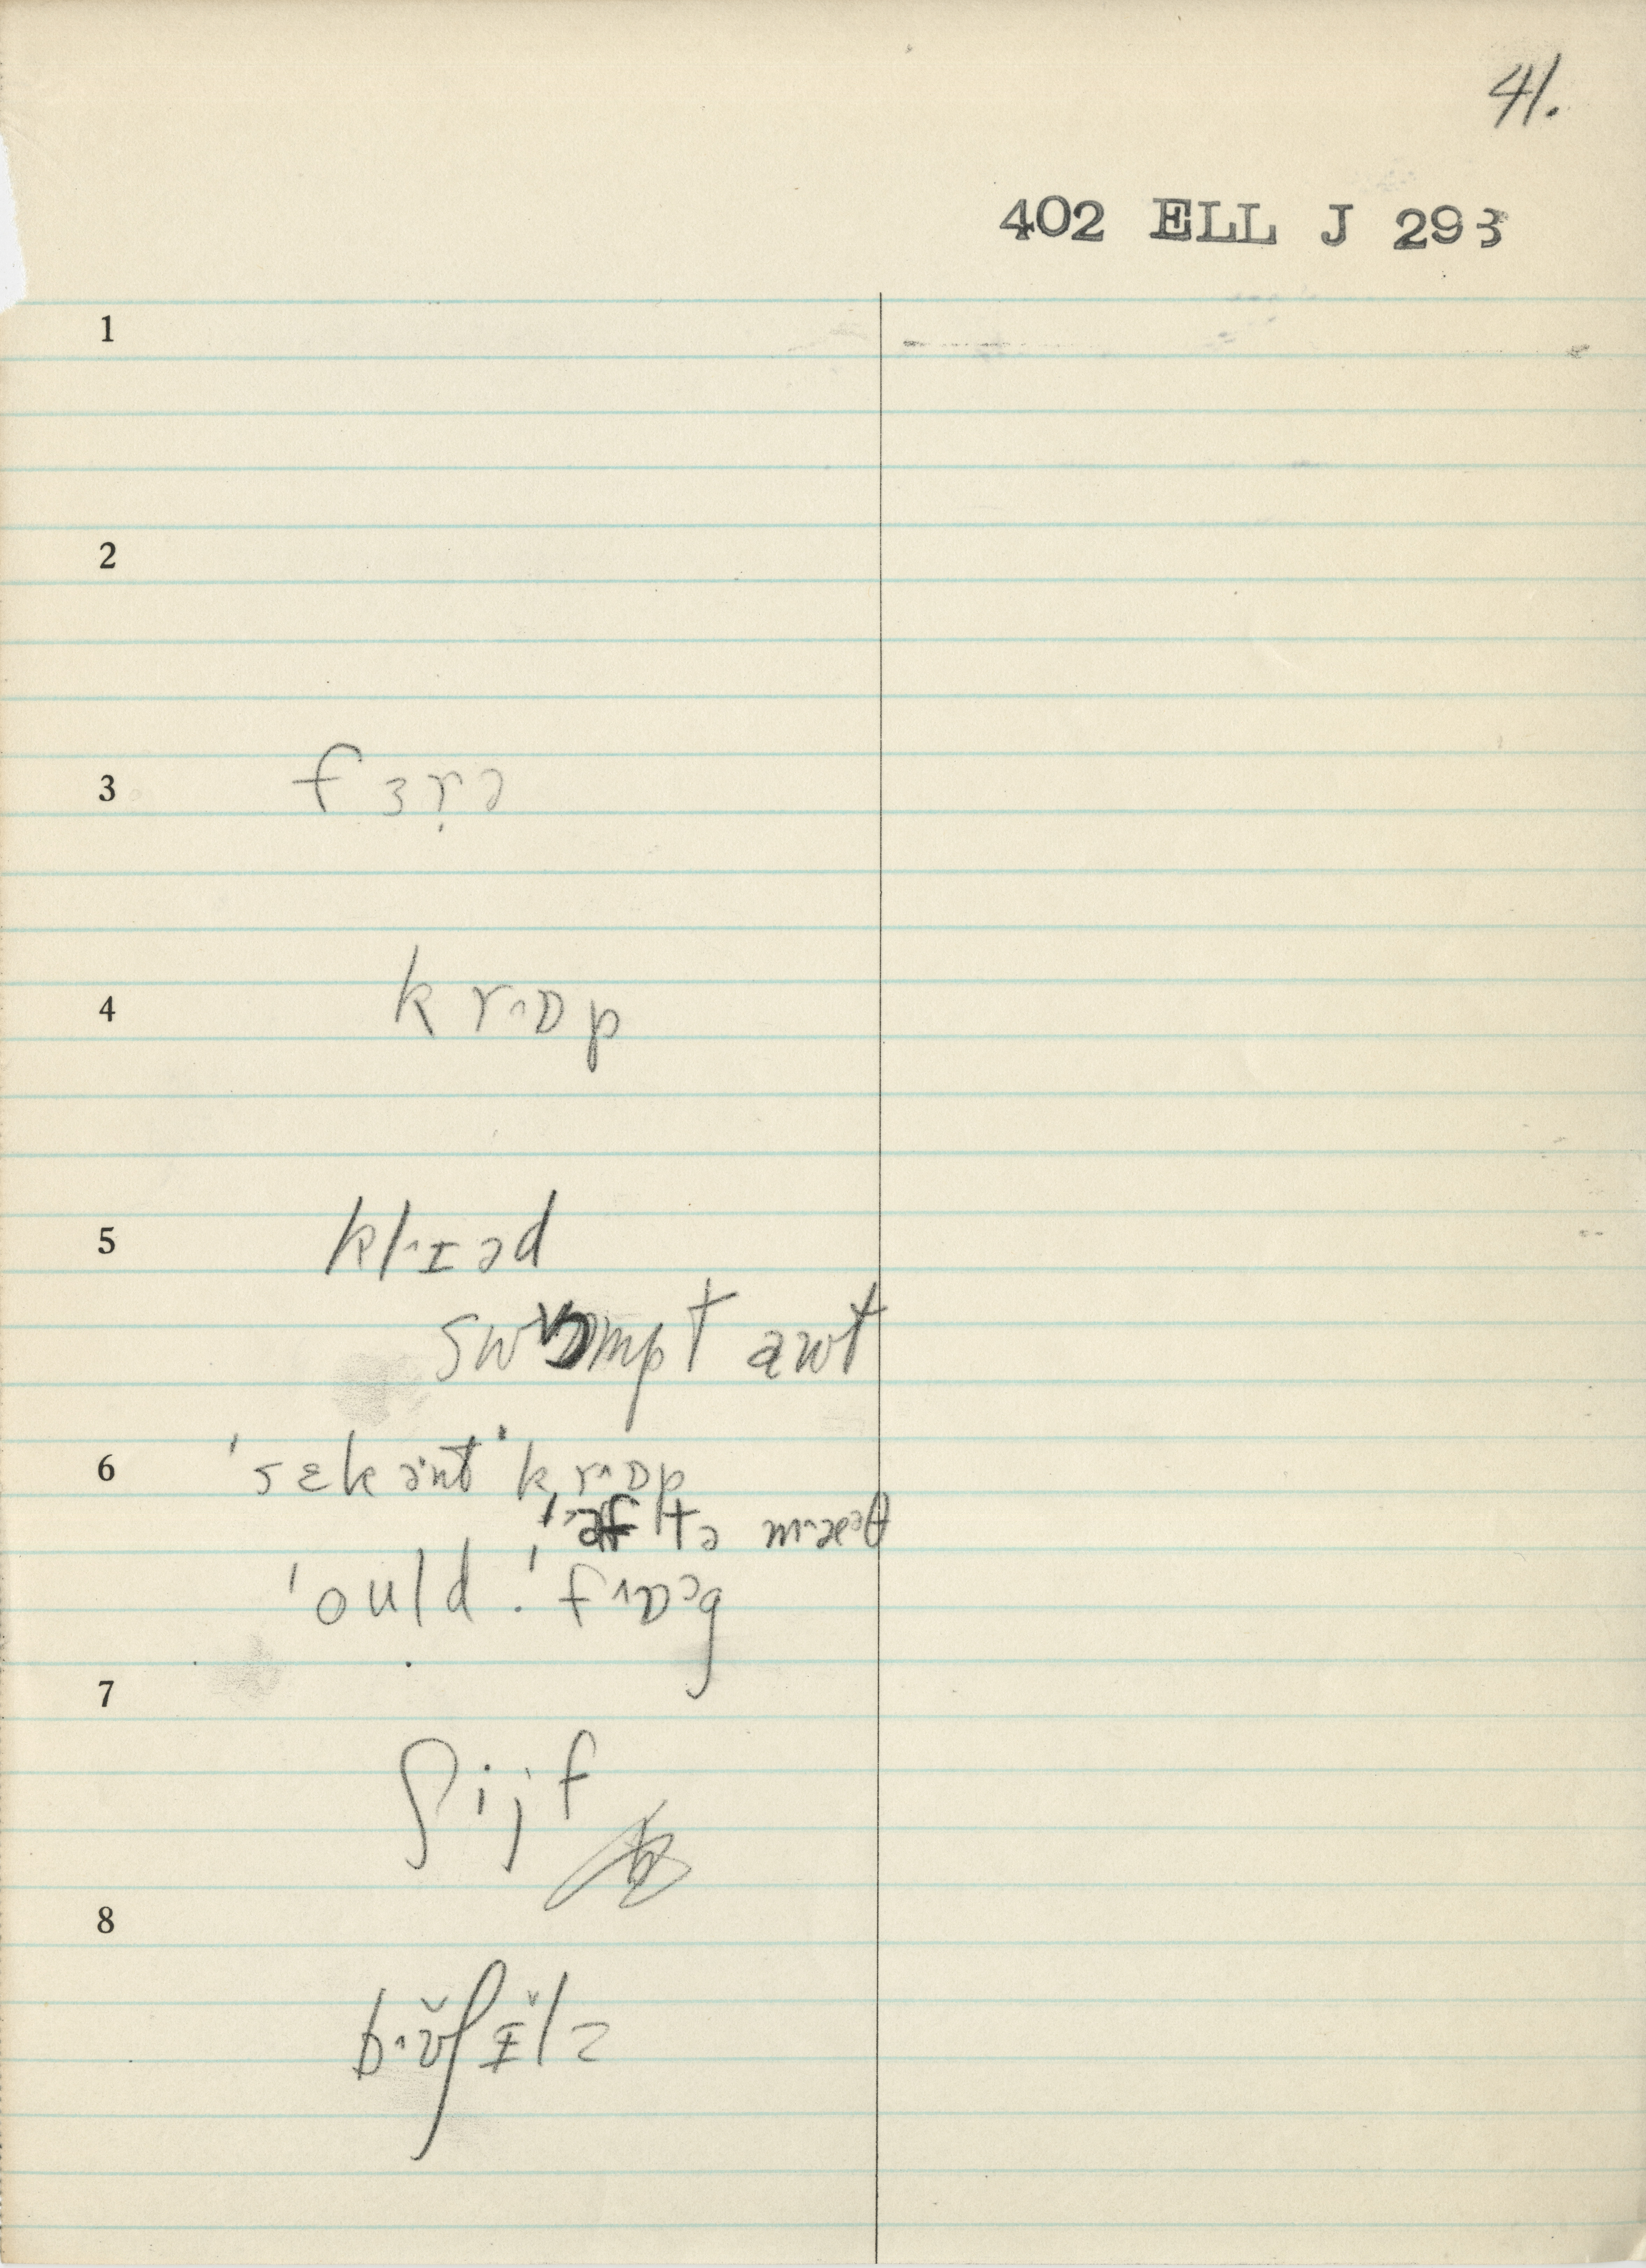 41.
402 ELL J 293
1
2
3 fɜr̩ə
4 krˑɒp
5 klˑɪəd
swɒmpt awt
6 ˈsɛkənt ˈkrˑɒp
ˈæftə mˑæəθ
ˈould ˈfrˑɒəg
7
ʃijf
8
bˑʊ̆ʃɪ̆lz